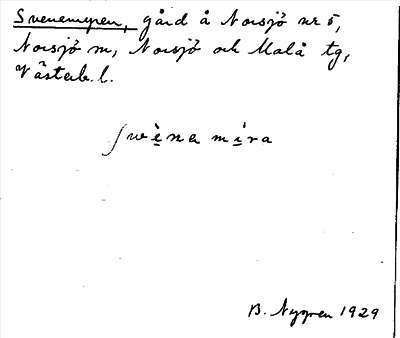 Svenemyren, gård å Norsjö nr 5,
Norsjö sn, Norsjö och Malå tg,
Västerb. l.
ʃwènamı́ra
B. Nygren 1929